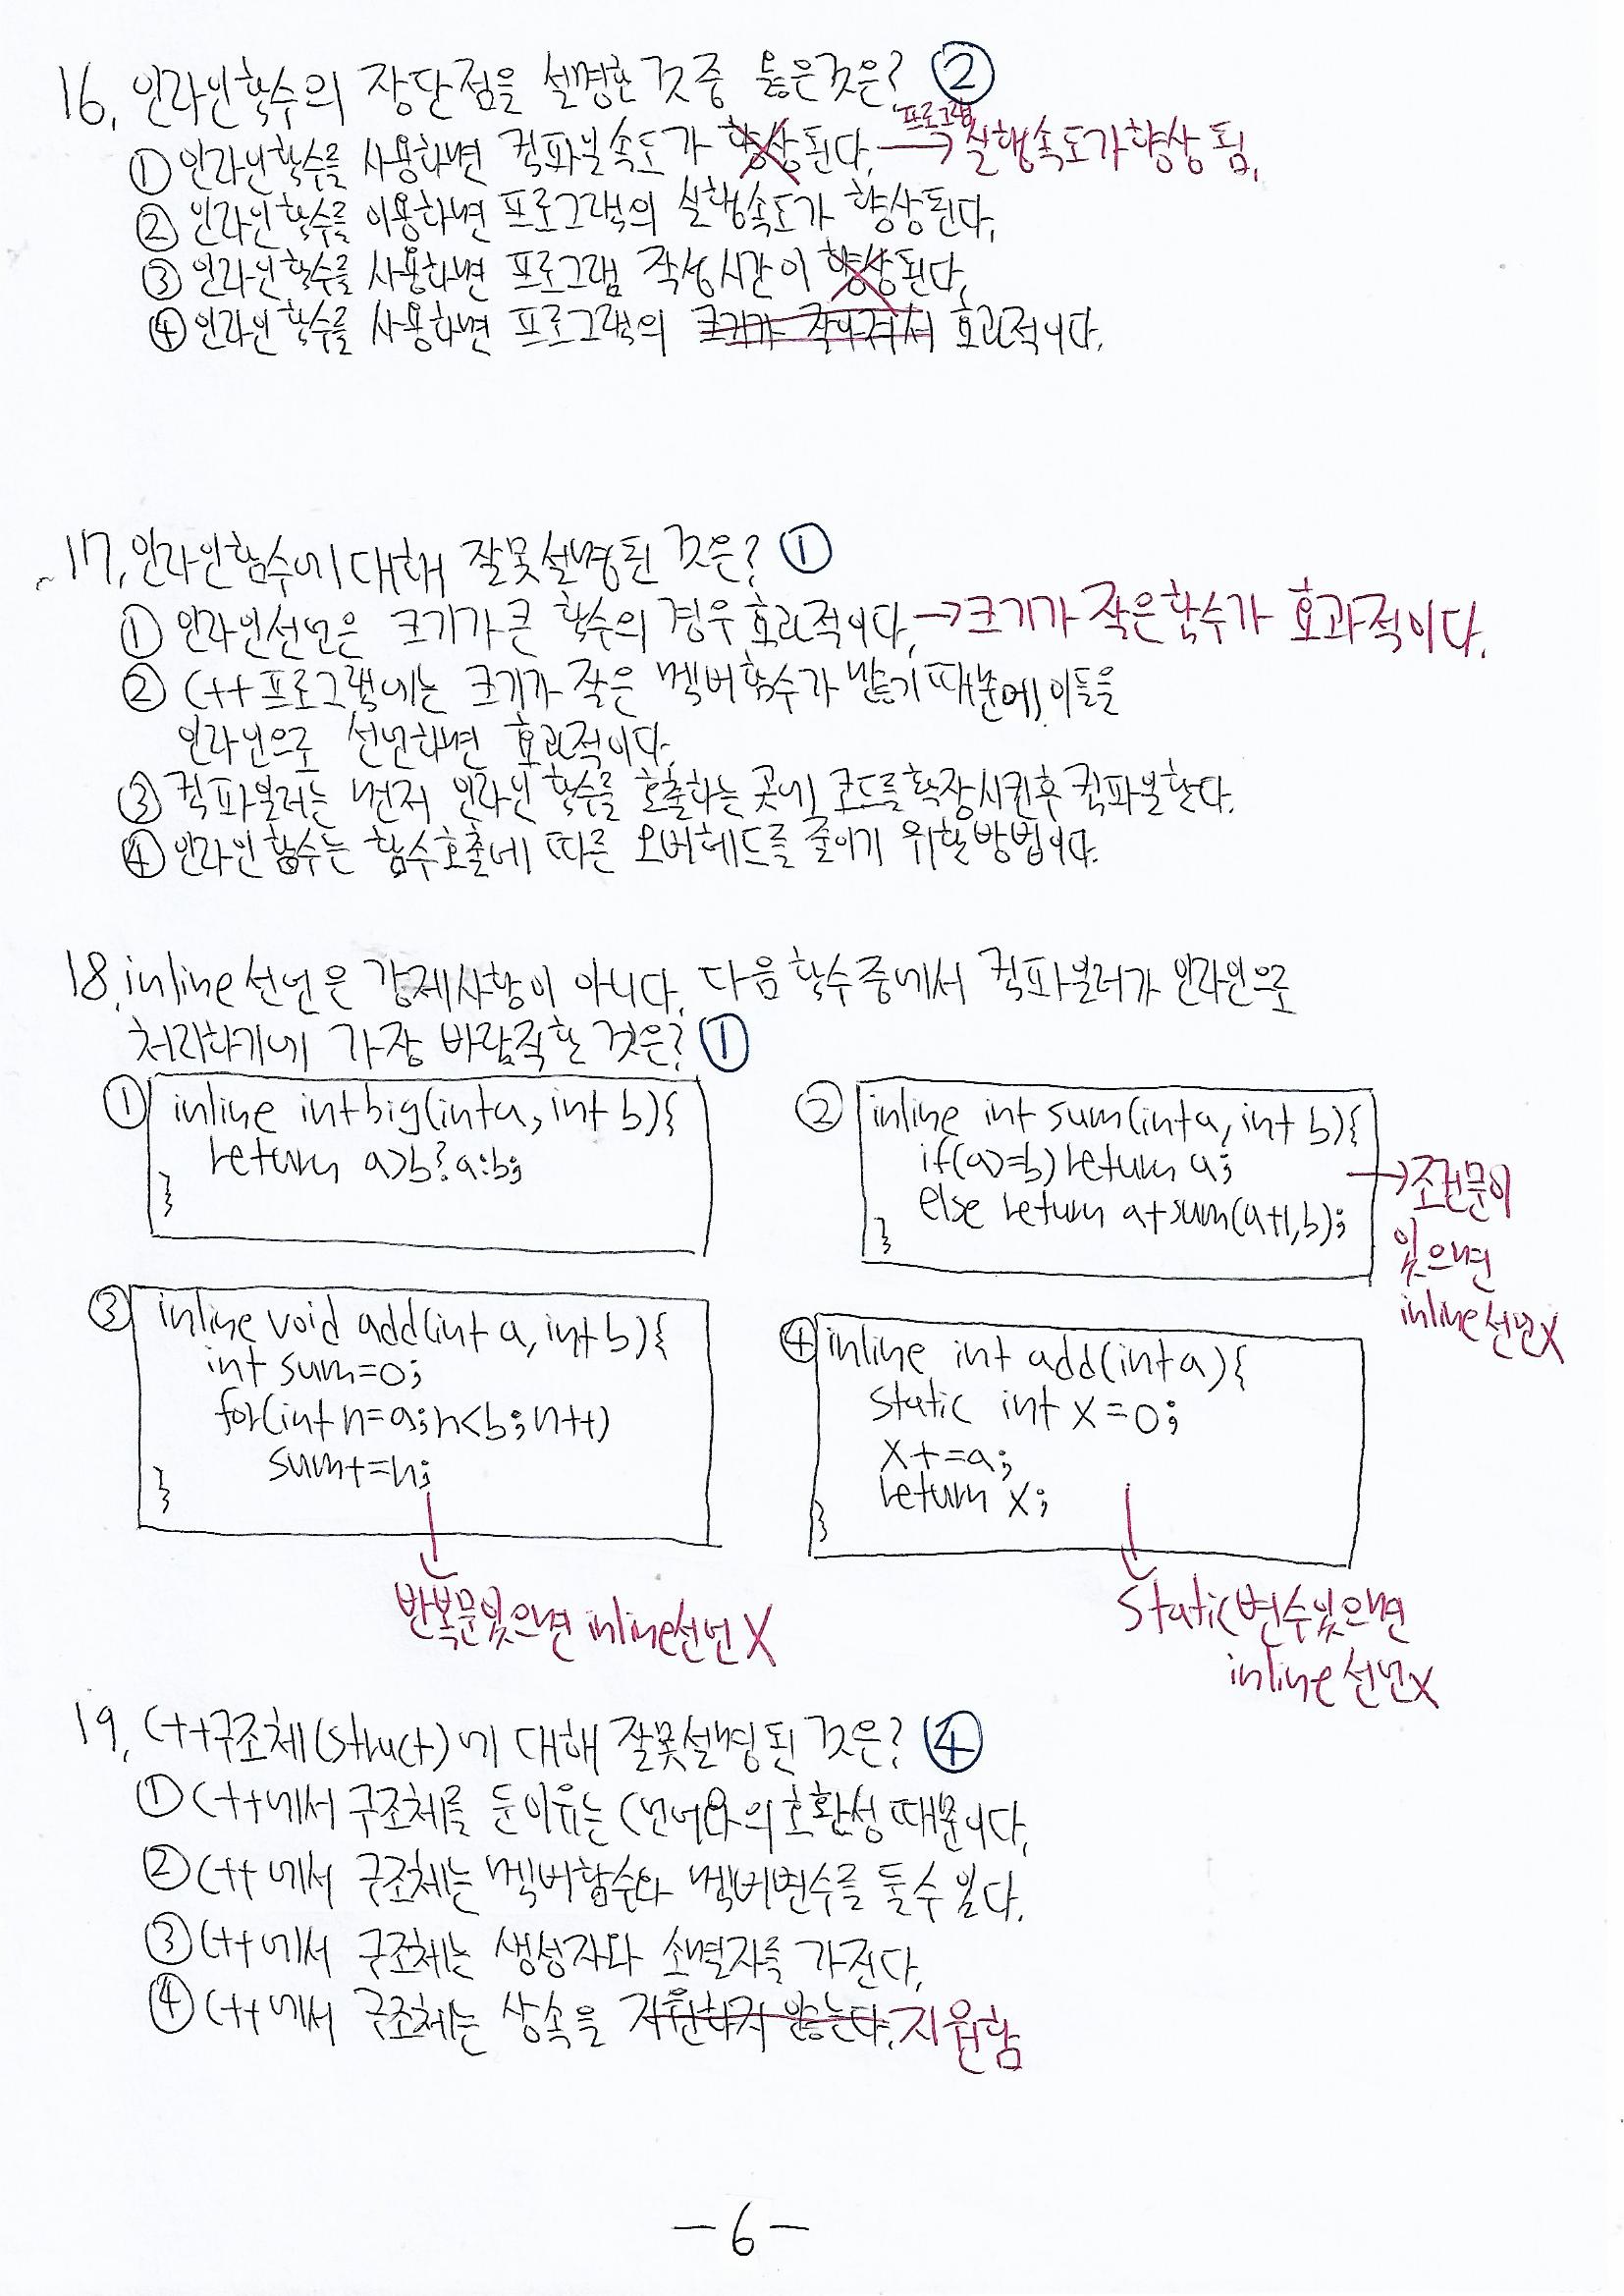 16. 인라인함수의 장단점을 설명한 것 중 옳은것은? ②
① 인라인함수를 사용하면 컴파일 속도가 향상된다. → 프로그램 실행속도가 향상 됨.
② 인라인함수를 이용하면 프로그램의 실행속도가 향상된다.
③ 인라인함수를 사용하면 프로그램 작성시간이 향상된다.
④ 인라인함수를 사용하면 프로그램의 크기가 작아져서 효과적이다.
17. 인라인함수에 대해 잘못설명된 것은? ①
① 인라인선언은 크기가 큰 함수의 경우 효과적이다. → 크기가 작은함수가 효과적이다.
② C++프로그램에는 크기가 작은 멤버함수가 많기 때문에, 이들을
인라인으로 선언하면 효과적이다.
③ 컴파일러는 먼저 인라인 함수를 호출하는 곳에 코드를확장시킨후 컴파일한다.
④ 인라인함수는 함수호출에 따른 오버헤드를 줄이기 위한방법이다.
18. inline선언은 강제사항이 아니다. 다음 함수중에서 컴파일러가 인라인으로
처리하기에 가장 바람직한 것은? ①
① inline int big(int a, int b){
return a>b?a:b;
}
② inline int sum(int a, int b){
if(a>=b) return a;
else return a+sum(a+1,b);
}
→ 조건문이
있으면
inline선언X
③ inline void add(int a, int b){
int sum=0;
for(int n=a;n<b;n++)
sum+=n;
}
반복문있으면 inline선언 X
④ inline int add(int a){
static int x=0;
x+=a;
return x;
}
static변수있으면
inline선언X
19. C++구조체(struct)에 대해 잘못설명된 것은? ④
① C++에서 구조체를 둔이유는 C언어와의 호환성 때문이다.
② C++에서 구조체는 멤버함수와 멤버변수를 둘 수 있다.
③ C++에서 구조체는 생성자와 소멸자를 가진다.
④ C++에서 구조체는 상속을 지원하지 않는다. 지원함
-6-